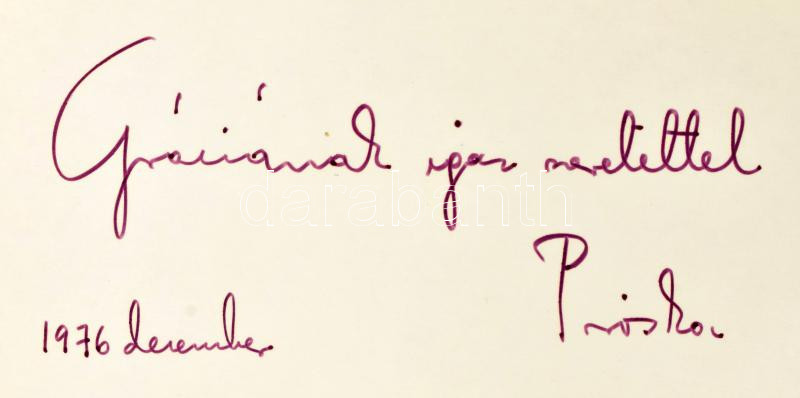 Gráciának igaz szeretettel
darabanth
Piroska
1976 december